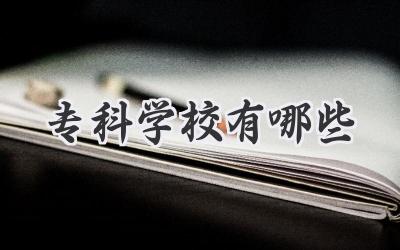 专科学校有哪些